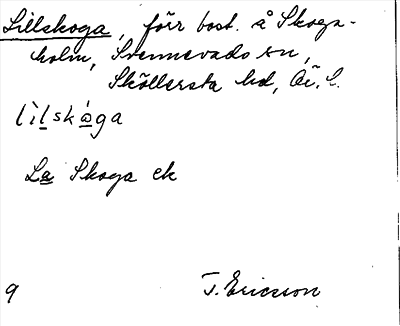 Lillskoga, förr bost. å Skoga-
holm, Svennevads sn,
Sköllersta hd, Ör. l.
lìl̲skǻ̲ga
La̲ Skoga ek
9
T. Ericsson